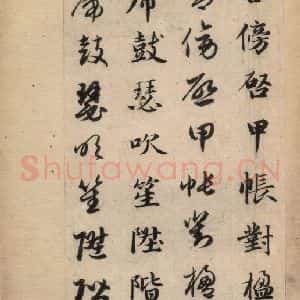 傍啓甲帳對楹
傍啓甲帳對楹
席鼓瑟吹笙陞階
席鼓瑟吹笙陞階
Shufawang.CN